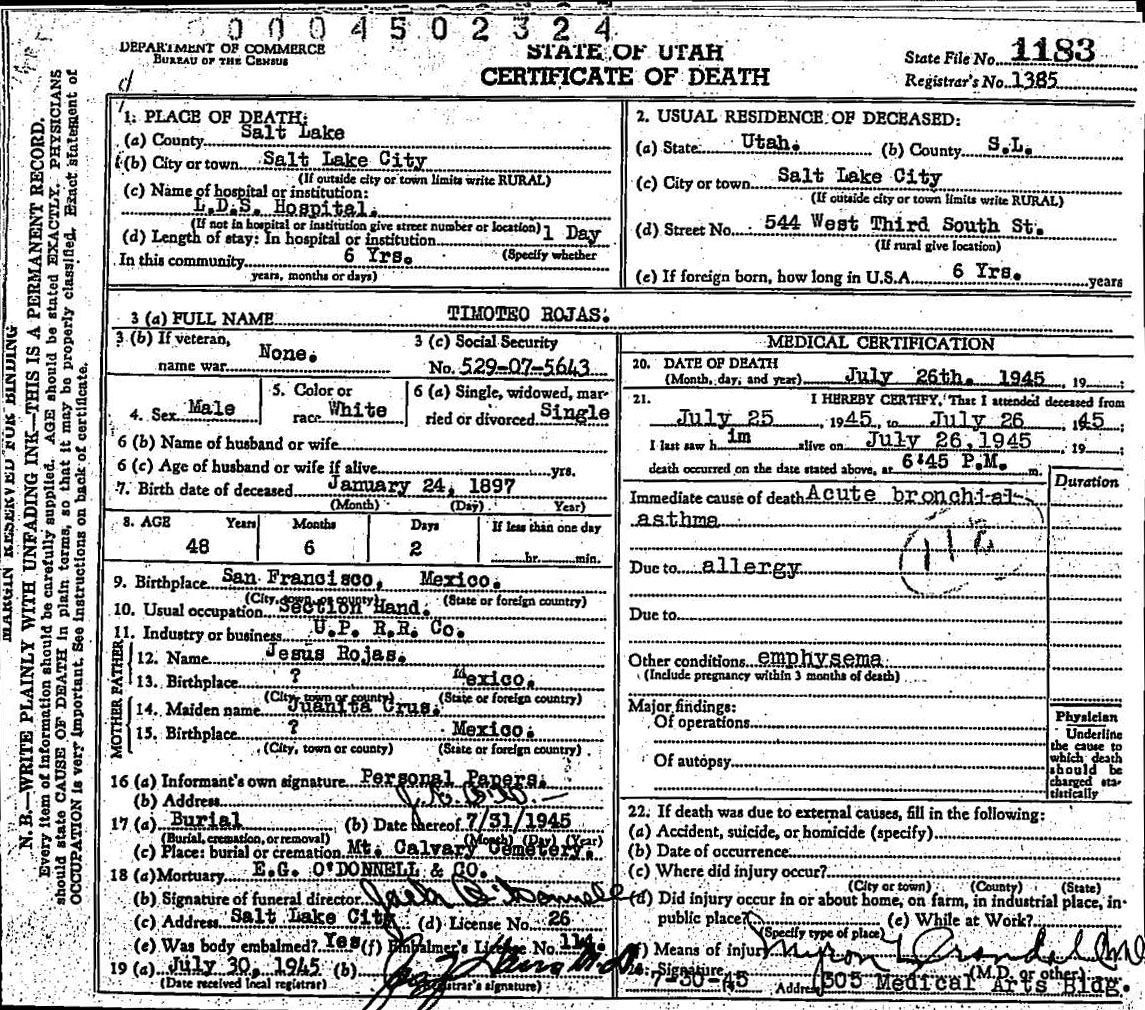 0 0 0 4 5 0 2 3 2 4
DEPARTMENT OF COMMERCE
BUREAU OF THE CENSUS
STATE OF UTAH
CERTIFICATE OF DEATH
State File No. 1183
Registrar's No. 1385
MARGIN RESERVED FOR BINDING
N. B.—WRITE PLAINLY WITH UNFADING INK—THIS IS A PERMANENT RECORD.
Every item of information should be carefully supplied. AGE should be stated EXACTLY. PHYSICIANS
should state CAUSE OF DEATH in plain terms, so that it may be properly classified. Exact statement of
OCCUPATION is very important. See instructions on back of certificate.
1. PLACE OF DEATH:
(a) County Salt Lake
(b) City or town Salt Lake City
(If outside city or town limits write RURAL)
(c) Name of hospital or institution:
L.D.S. Hospital.
(If not in hospital or institution give street number or location)
(d) Length of stay: In hospital or institution 1 Day
(Specify whether
In this community 6 Yrs.
years, months or days)
2. USUAL RESIDENCE OF DECEASED:
(a) State Utah. (b) County S.L.
(c) City or town Salt Lake City
(If outside city or town limits write RURAL)
(d) Street No. 544 West Third South St.
(If rural give location)
(e) If foreign born, how long in U.S.A. 6 Yrs. years
3 (a) FULL NAME TIMOTEO ROJAS.
3 (b) If veteran,
name war None.
3 (c) Social Security
No. 529-07-5643
4. Sex Male
5. Color or
race White
6 (a) Single, widowed, mar-
ried or divorced Single
6 (b) Name of husband or wife
6 (c) Age of husband or wife if alive yrs.
7. Birth date of deceased January 24, 1897
(Month) (Day) Year)
8. AGE Years Months Days If less than one day
48 6 2 hr. min.
9. Birthplace San Francisco, Mexico.
(City, town or county) (State or foreign country)
10. Usual occupation Section Hand.
11. Industry or business U.P. R.R. Co.
FATHER
12. Name Jesus Rojas.
13. Birthplace ? Mexico.
(City, town or county) (State or foreign country)
MOTHER
14. Maiden name Juanita Crus.
15. Birthplace ? Mexico.
(City, town or county) (State or foreign country)
16 (a) Informant's own signature Personal Papers.
(b) Address
17 (a) Burial (b) Date thereof 7/31/1945
(Burial, cremation, or removal) (Month) (Day) (Year)
(c) Place: burial or cremation Mt. Calvary Cemetery.
18 (a) Mortuary E.G. O'DONNELL & CO.
(b) Signature of funeral director Jack O'Donnell
(c) Address Salt Lake City (d) License No. 26
(e) Was body embalmed? Yes (f) Embalmer's License No. 114.
19 (a) July 30, 1945 (b)
(Date received local registrar) (Registrar's signature)
MEDICAL CERTIFICATION
20. DATE OF DEATH
(Month, day, and year) July 26th. 1945 , 19 ;
21. I HEREBY CERTIFY, That I attended deceased from
July 25 1945, to July 26 1945;
I last saw him alive on July 26, 1945 19 ;
death occurred on the date stated above, at 6:45 P.M. m.
Duration
Immediate cause of death Acute bronchial
asthma
112
Due to allergy
Due to
Other conditions emphysema
(Include pregnancy within 3 months of death)
Major findings:
Of operations
Of autopsy
Physician
Underline
the cause to
which death
should be
charged sta-
tistically
22. If death was due to external causes, fill in the following:
(a) Accident, suicide, or homicide (specify)
(b) Date of occurrence
(c) Where did injury occur?
(City or town) (County) (State)
(d) Did injury occur in or about home, on farm, in industrial place, in
public place? (e) While at Work?
(Specify type of place)
(f) Means of injury
Signature (M.D. or other)
7-30-45 Address 305 Medical Arts Bldg.